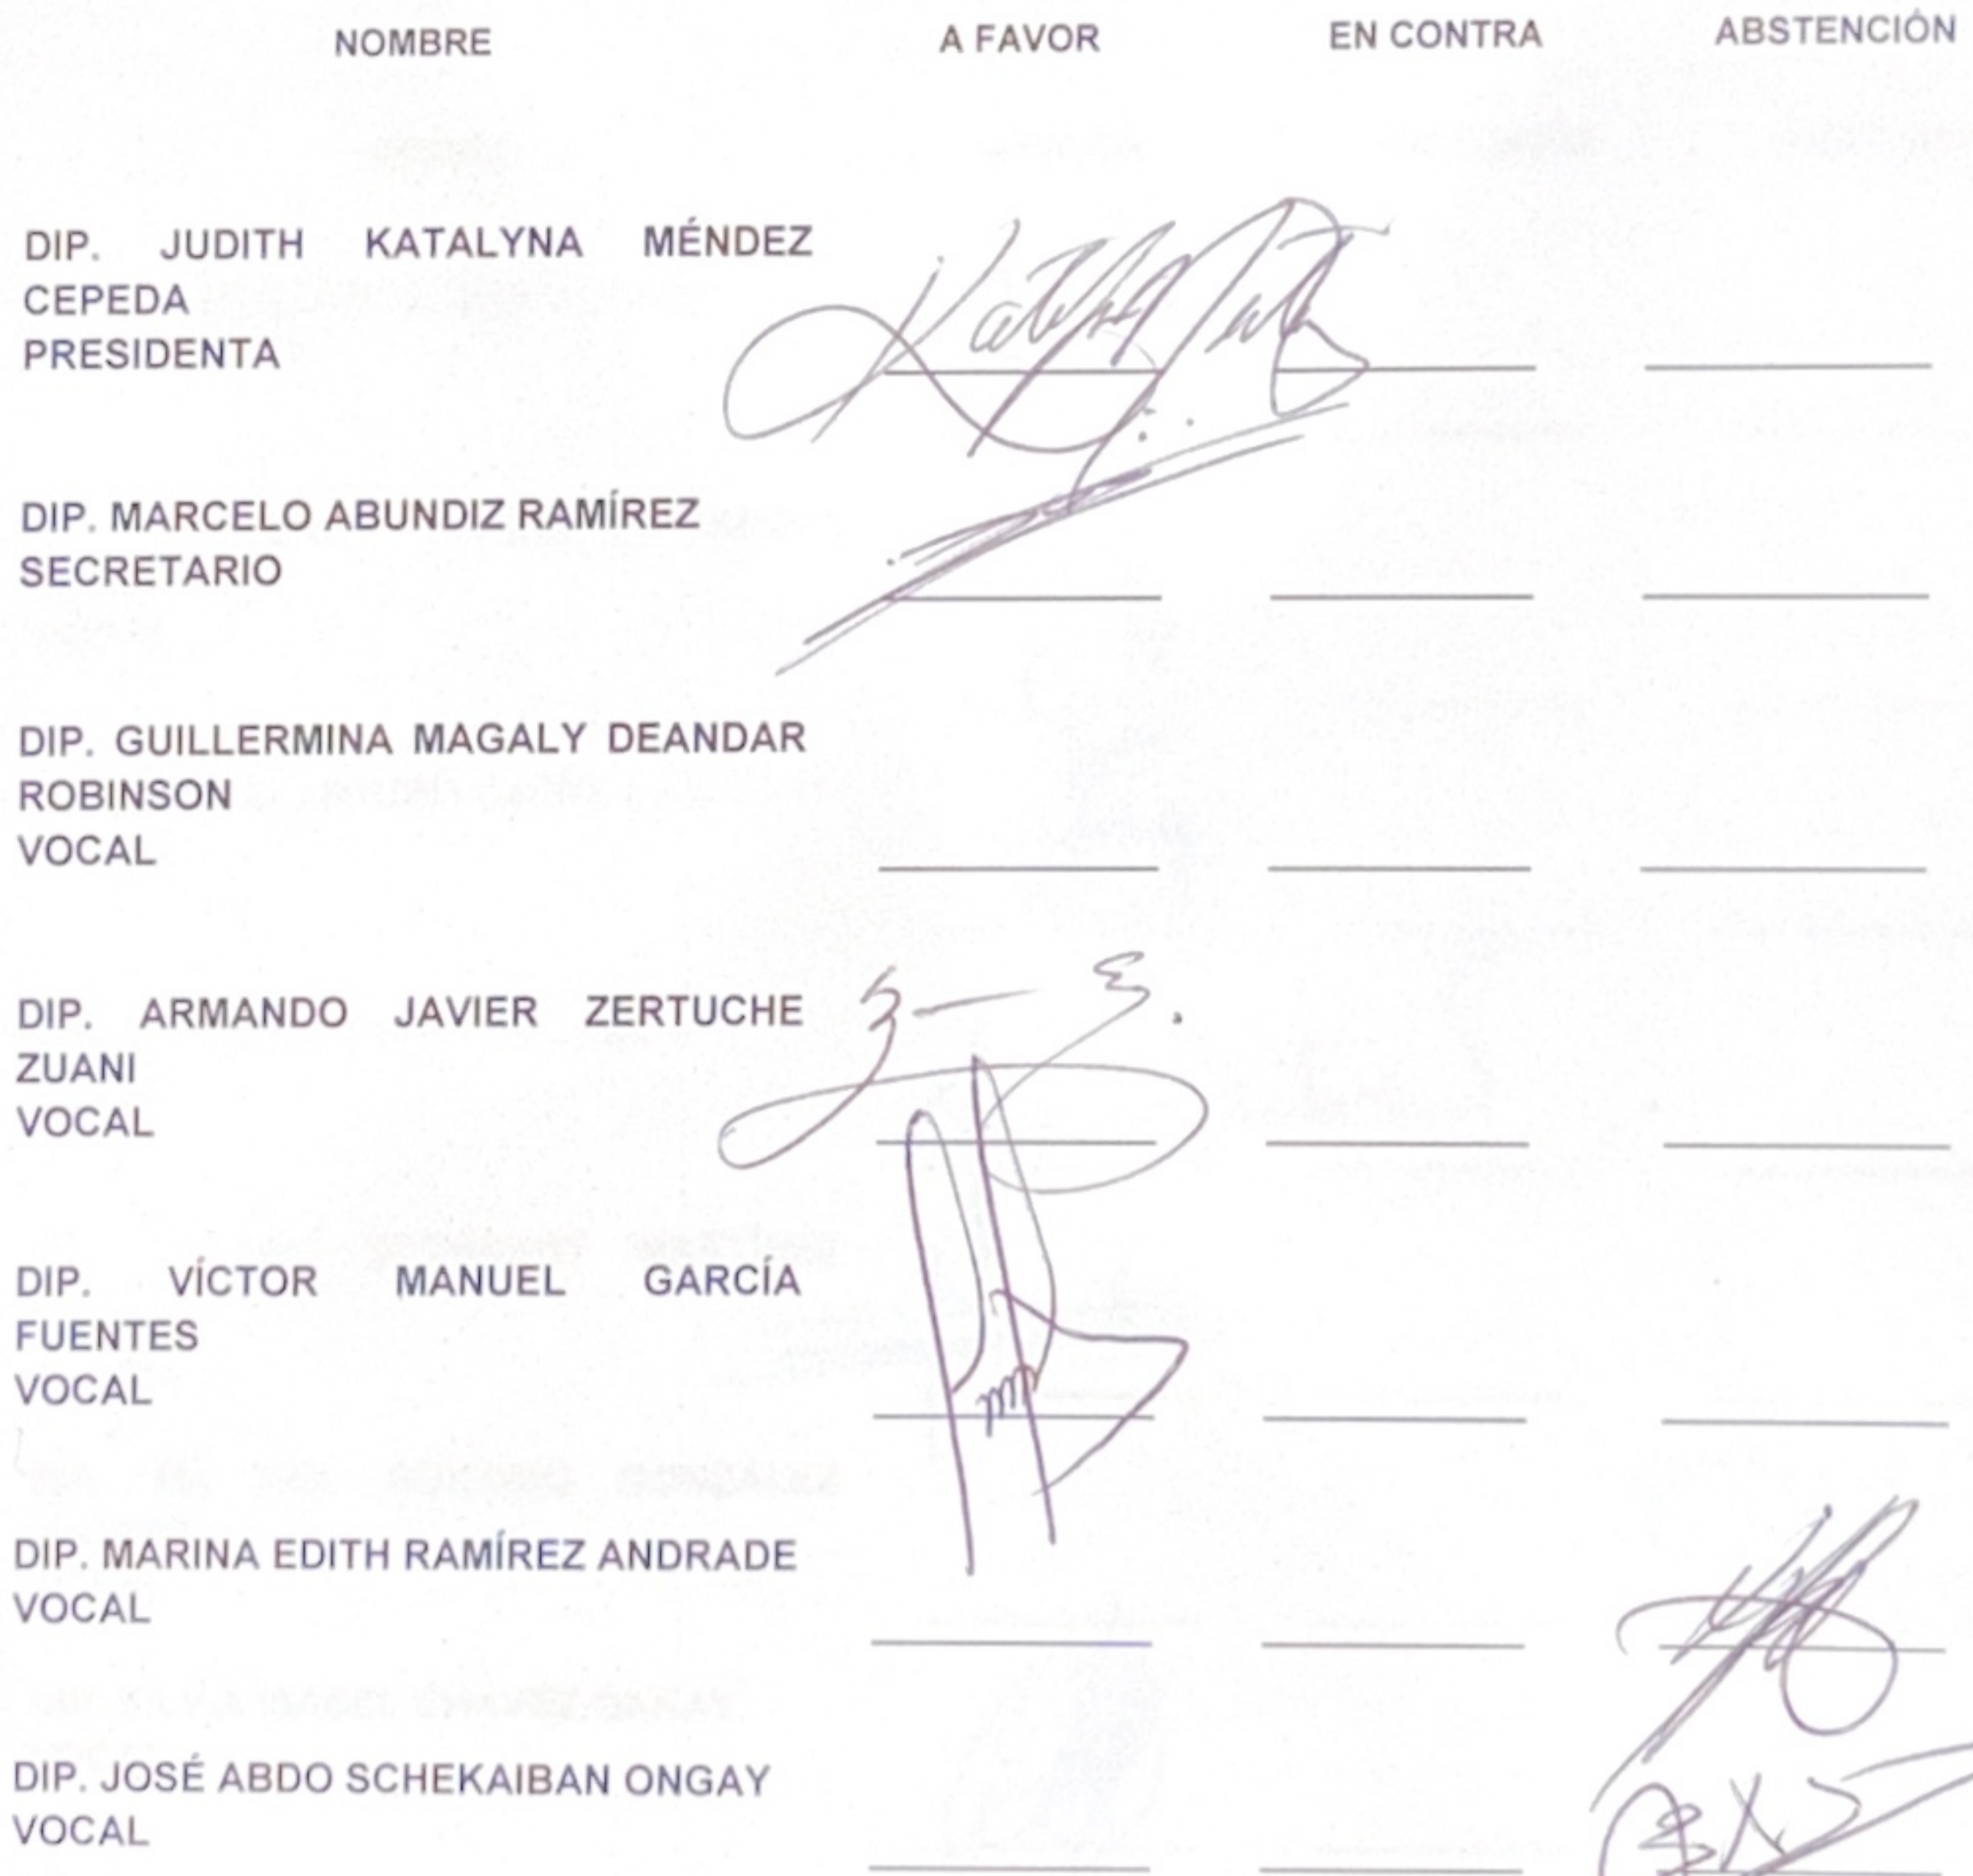 NOMBRE A FAVOR EN CONTRA ABSTENCIÓN
DIP. JUDITH KATALYNA MÉNDEZ
CEPEDA
PRESIDENTA
DIP. MARCELO ABUNDIZ RAMÍREZ
SECRETARIO
DIP. GUILLERMINA MAGALY DEANDAR
ROBINSON
VOCAL
DIP. ARMANDO JAVIER ZERTUCHE
ZUANI
VOCAL
DIP. VÍCTOR MANUEL GARCÍA
FUENTES
VOCAL
DIP. MARINA EDITH RAMÍREZ ANDRADE
VOCAL
DIP. JOSÉ ABDO SCHEKAIBAN ONGAY
VOCAL